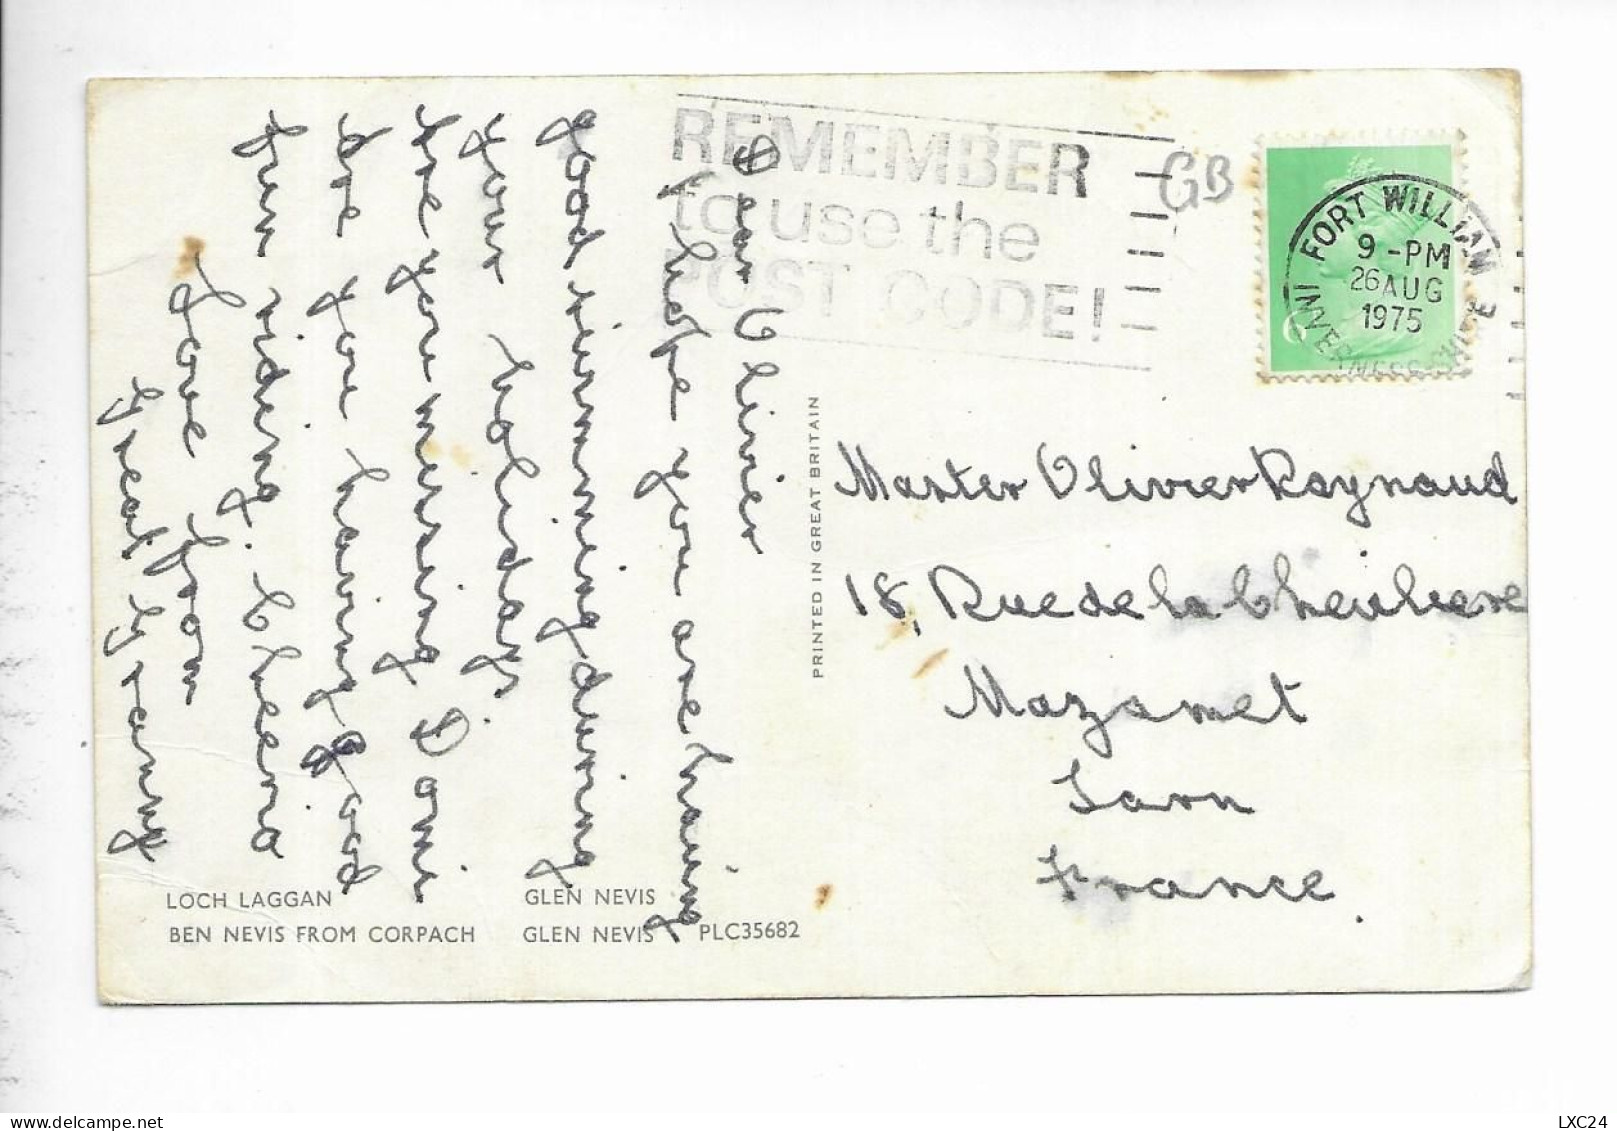 REMEMBER
to use the
POST CODE!
GB
FORT WILLIAM
9-PM
26 AUG
1975
INVERNESS-SHIRE
Dear Olivier
I hope you are having
good simming during
your holidays.
Are you missing Domi
are you having good
fun riding. Cheerio
Love from
Great Granny
PRINTED IN GREAT BRITAIN
Master Olivier Raynaud
18, Rue de la
Mazamet
Tarn
France.
LOCH LAGGAN GLEN NEVIS
BEN NEVIS FROM CORPACH GLEN NEVIS PLC35682
LXC24